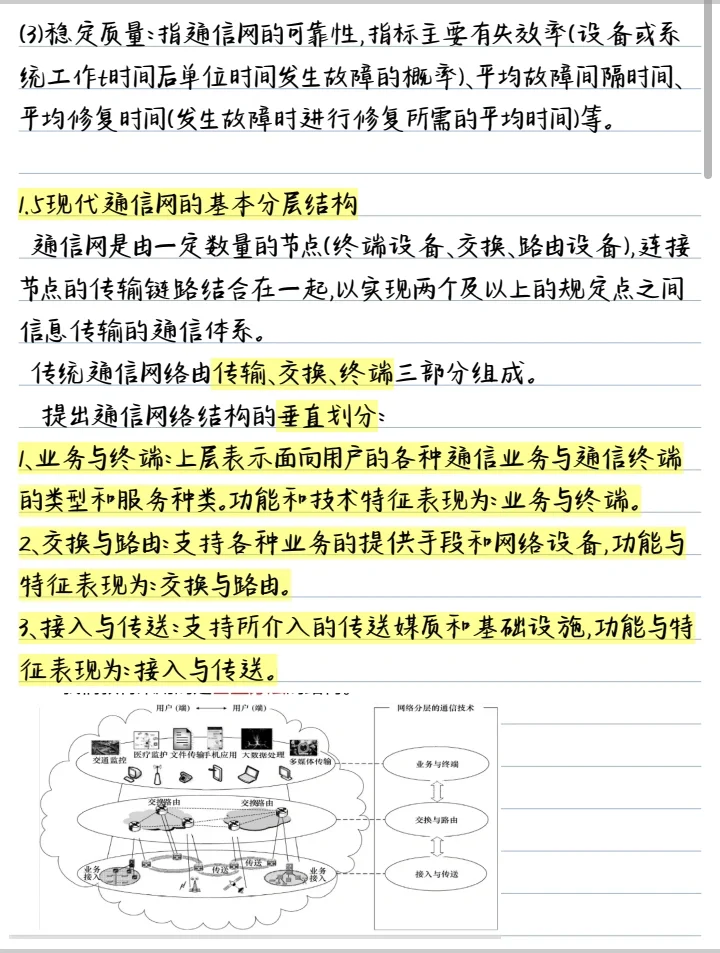 (3)稳定质量:指通信网的可靠性,指标主要有失效率(设备或系
统工作t时间后单位时间发生故障的概率)、平均故障间隔时间、
平均修复时间(发生故障时进行修复所需的平均时间)等。
1.5现代通信网的基本分层结构
通信网是由一定数量的节点(终端设备、交换、路由设备),连接
节点的传输链路结合在一起,以实现两个及以上的规定点之间
信息传输的通信体系。
传统通信网络由传输、交换、终端三部分组成。
提出通信网络结构的垂直划分:
1、业务与终端:上层表示面向用户的各种通信业务与通信终端
的类型和服务种类。功能和技术特征表现为:业务与终端。
2、交换与路由:支持各种业务的提供手段和网络设备,功能与
特征表现为:交换与路由。
3、接入与传送:支持所介入的传送媒质和基础设施,功能与特
征表现为:接入与传送。
用户(端) 用户(端)
网络分层的通信技术
交通监控 医疗监护 文件传输 手机应用 大数据处理 多媒体传输
业务与终端
交换路由 交换路由
交换与路由
业务接入 传送 传送 业务接入
接入与传送